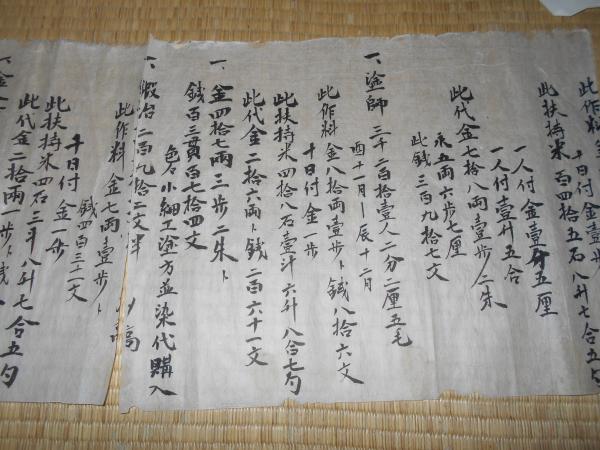 此作料金
十日付金一歩
此扶持米 百四拾五石八升七合五勺
一人付金壹分五厘
一人付壹升五合
此代金七拾八兩壹歩二朱
永五両六歩七厘
此銭三百九拾七文
一、塗師 三千二百拾壹人二分二厘五毛
酉十二月ー辰十二月
此作料 金八拾両壹歩ト銭八拾六文
十日付金一歩
此扶持米四拾八石壹斗六升八合七勺
此代金二拾六両ト銭二百六十一文
一、金四拾七兩三歩二朱ト
銭百三貫百七拾四文
色々小細工塗方並染代購入
一、鍛冶二百九拾三文半
此作料金七兩壹歩ト
銭四百三十一文
十日付金一歩
此扶持米四石三斗八升七合五勺
此代金二拾両一歩ト銭
一、金